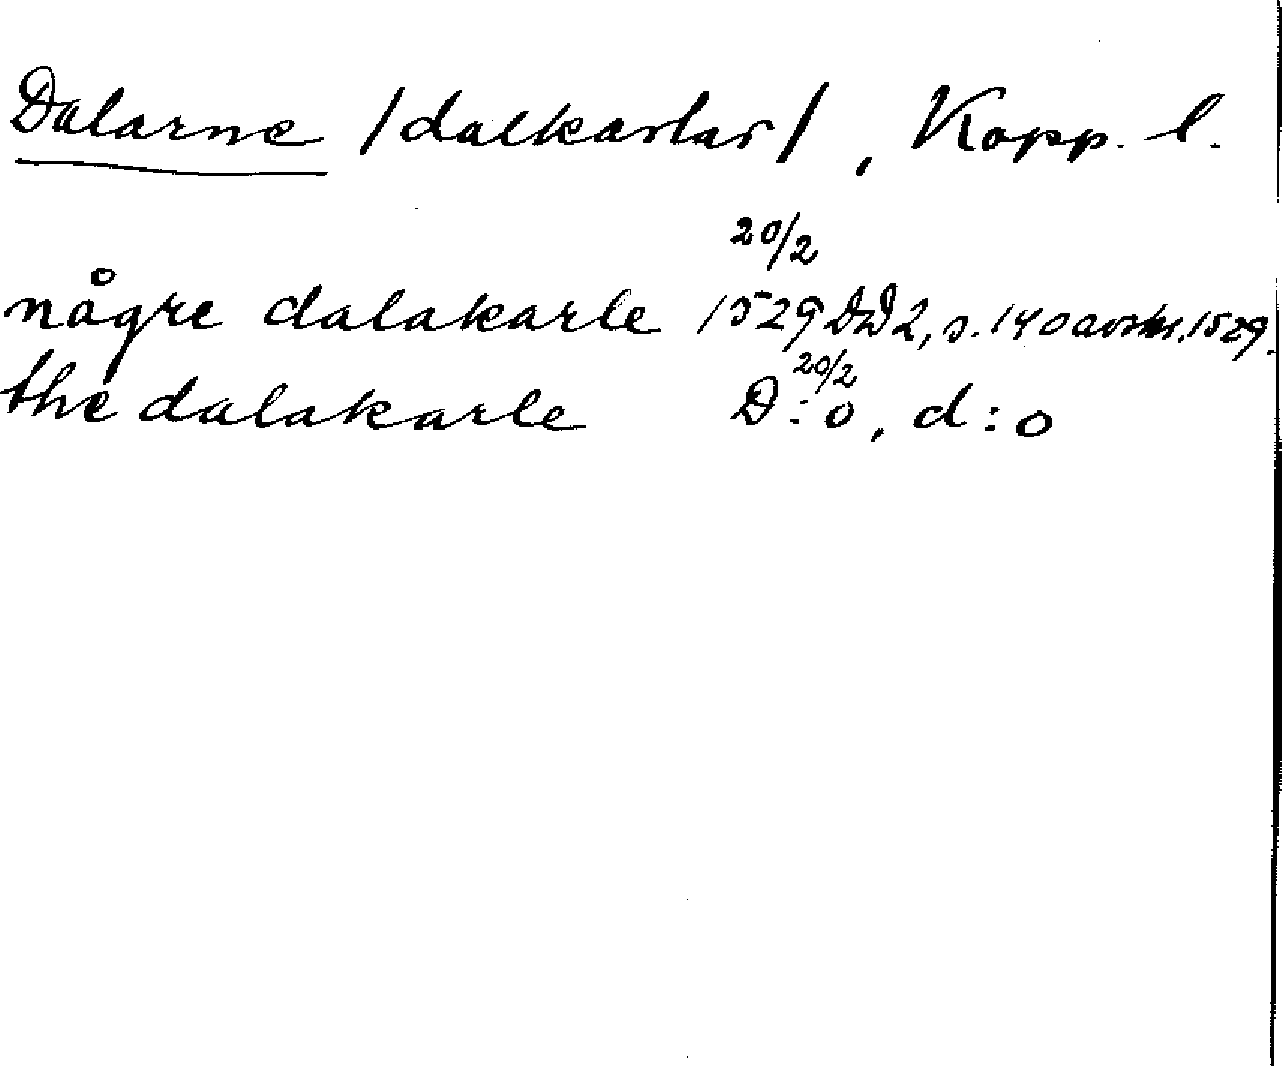 Dalarne /dalkarlar/, Kopp. l.
20/2
någre dalakarle 1529 DD2, s. 140 avskr. 1529.
20/2
the dalakarle D:o, d:o